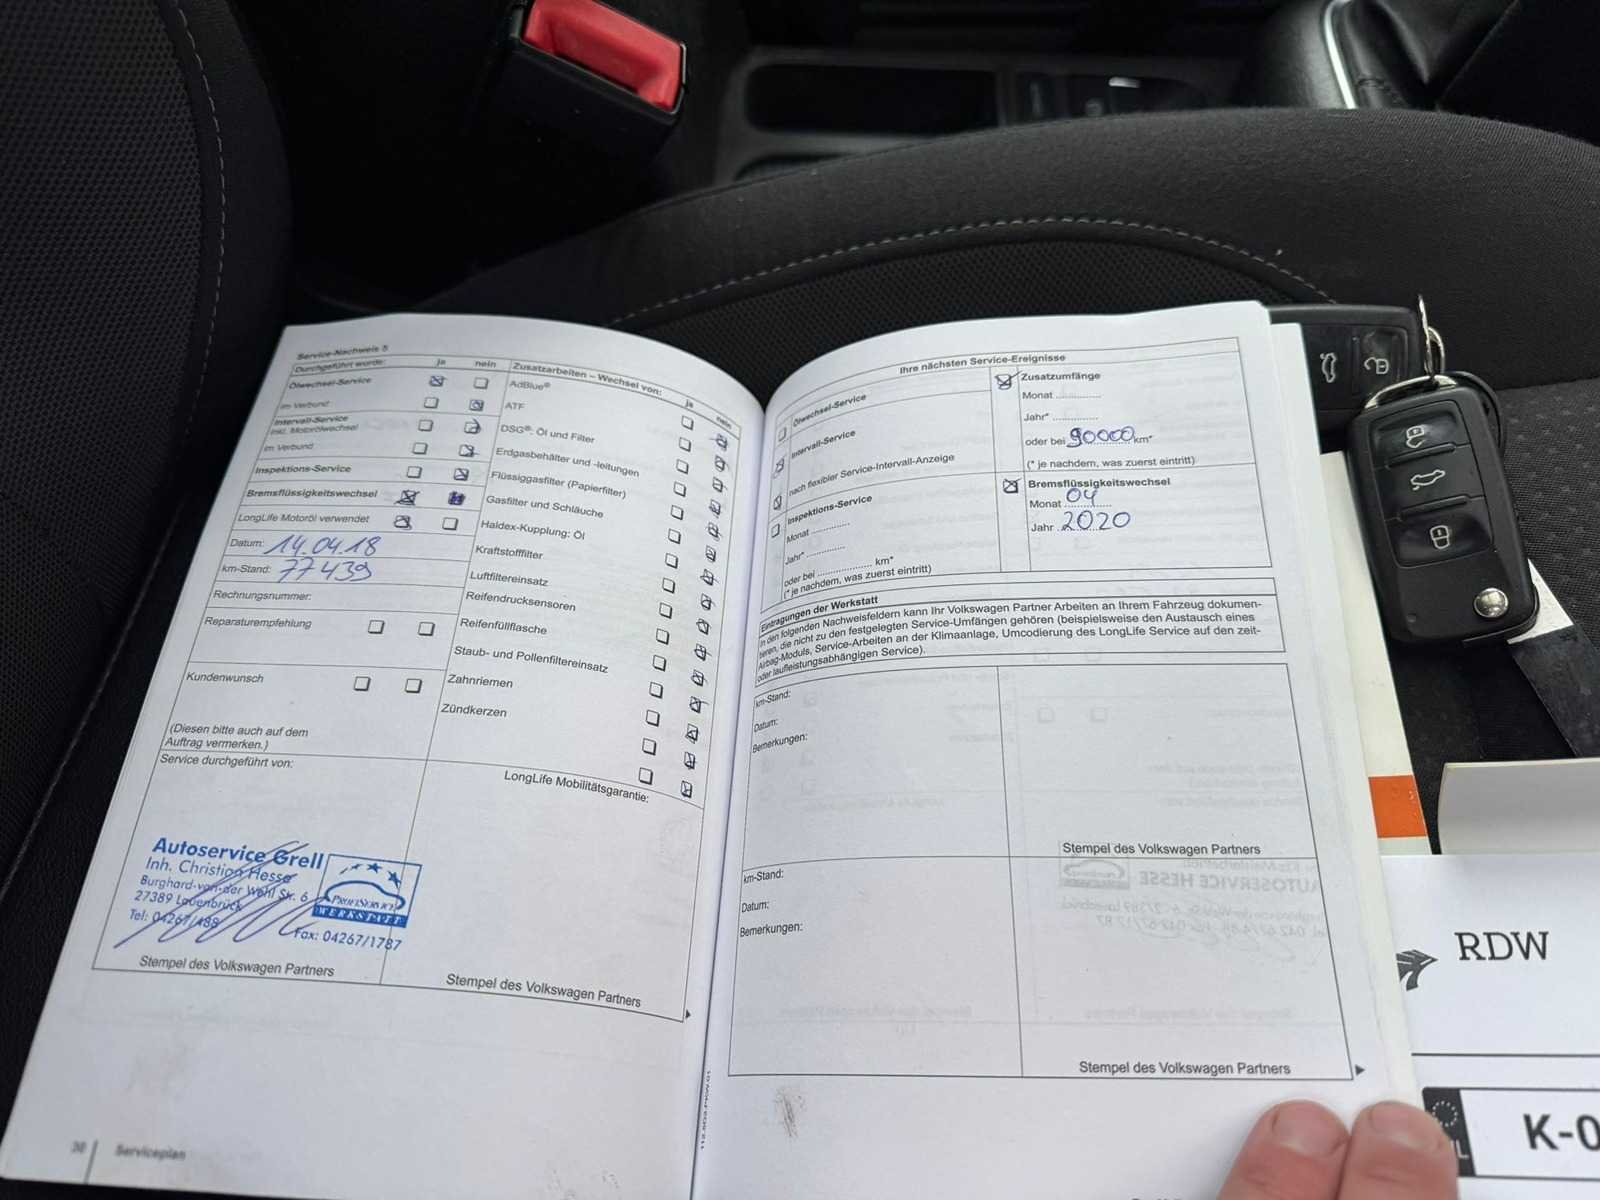 Service-Nachweis 5
Durchgeführt wurde: ja nein
Ölwechsel-Service
im Verbund
Intervall-Service
inkl. Motorölwechsel
im Verbund
Inspektions-Service
Bremsflüssigkeitswechsel
LongLife Motoröl verwendet
Datum: 14.04.18
km-Stand: 77439
Rechnungsnummer:
Reparaturempfehlung
Kundenwunsch
(Diesen bitte auch auf dem
Auftrag vermerken.)
Service durchgeführt von:
Autoservice Grell
Inh. Christian Hesse
Burghard-von-der Wehl Str. 6
27389 Lauenbrück
Tel: 04267/488
Fax: 04267/1787
PROFISERVICE
WERKSTATT
Stempel des Volkswagen Partners
Zusatzarbeiten – Wechsel von: ja nein
AdBlue®
ATF
DSG®: Öl und Filter
Erdgasbehälter und -leitungen
Flüssiggasfilter (Papierfilter)
Gasfilter und Schläuche
Haldex-Kupplung: Öl
Kraftstofffilter
Luftfiltereinsatz
Reifendrucksensoren
Reifenfüllflasche
Staub- und Pollenfiltereinsatz
Zahnriemen
Zündkerzen
LongLife Mobilitätsgarantie:
Stempel des Volkswagen Partners
Serviceplan
Ihre nächsten Service-Ereignisse
Ölwechsel-Service
Intervall-Service
nach flexibler Service-Intervall-Anzeige
Inspektions-Service
Monat ..............
Jahr* ..............
oder bei .................... km*
(* je nachdem, was zuerst eintritt)
Zusatzumfänge
Monat ..............
Jahr* ..............
oder bei 90000 km*
(* je nachdem, was zuerst eintritt)
Bremsflüssigkeitswechsel
Monat 04
Jahr 2020
Eintragungen der Werkstatt
In den folgenden Nachweisfeldern kann Ihr Volkswagen Partner Arbeiten an Ihrem Fahrzeug dokumen-
tieren, die nicht zu den festgelegten Service-Umfängen gehören (beispielsweise den Austausch eines
Airbag-Moduls, Service-Arbeiten an der Klimaanlage, Umcodierung des LongLife Service auf den zeit-
oder laufleistungsabhängigen Service).
km-Stand:
Datum:
Bemerkungen:
Stempel des Volkswagen Partners
km-Stand:
Datum:
Bemerkungen:
Stempel des Volkswagen Partners
RDW
K-0